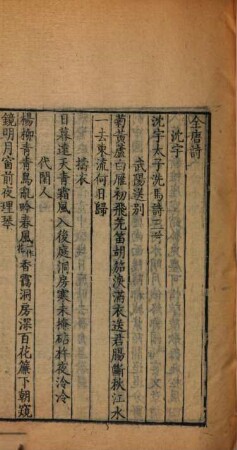 全唐詩
沈宇
沈宇太子洗馬詩三首
武陽送別
菊黃蘆白雁初飛羌笛胡笳淚滿衣送君腸斷秋江水
一去東流何日歸
擣衣
日暮遠天青霜風入後庭洞房寒未掩砧杵夜泠泠
代閨人
楊柳青青鳥亂吟春風香靄洞房深百花簾下朝窺
鏡明月窗前夜理琴